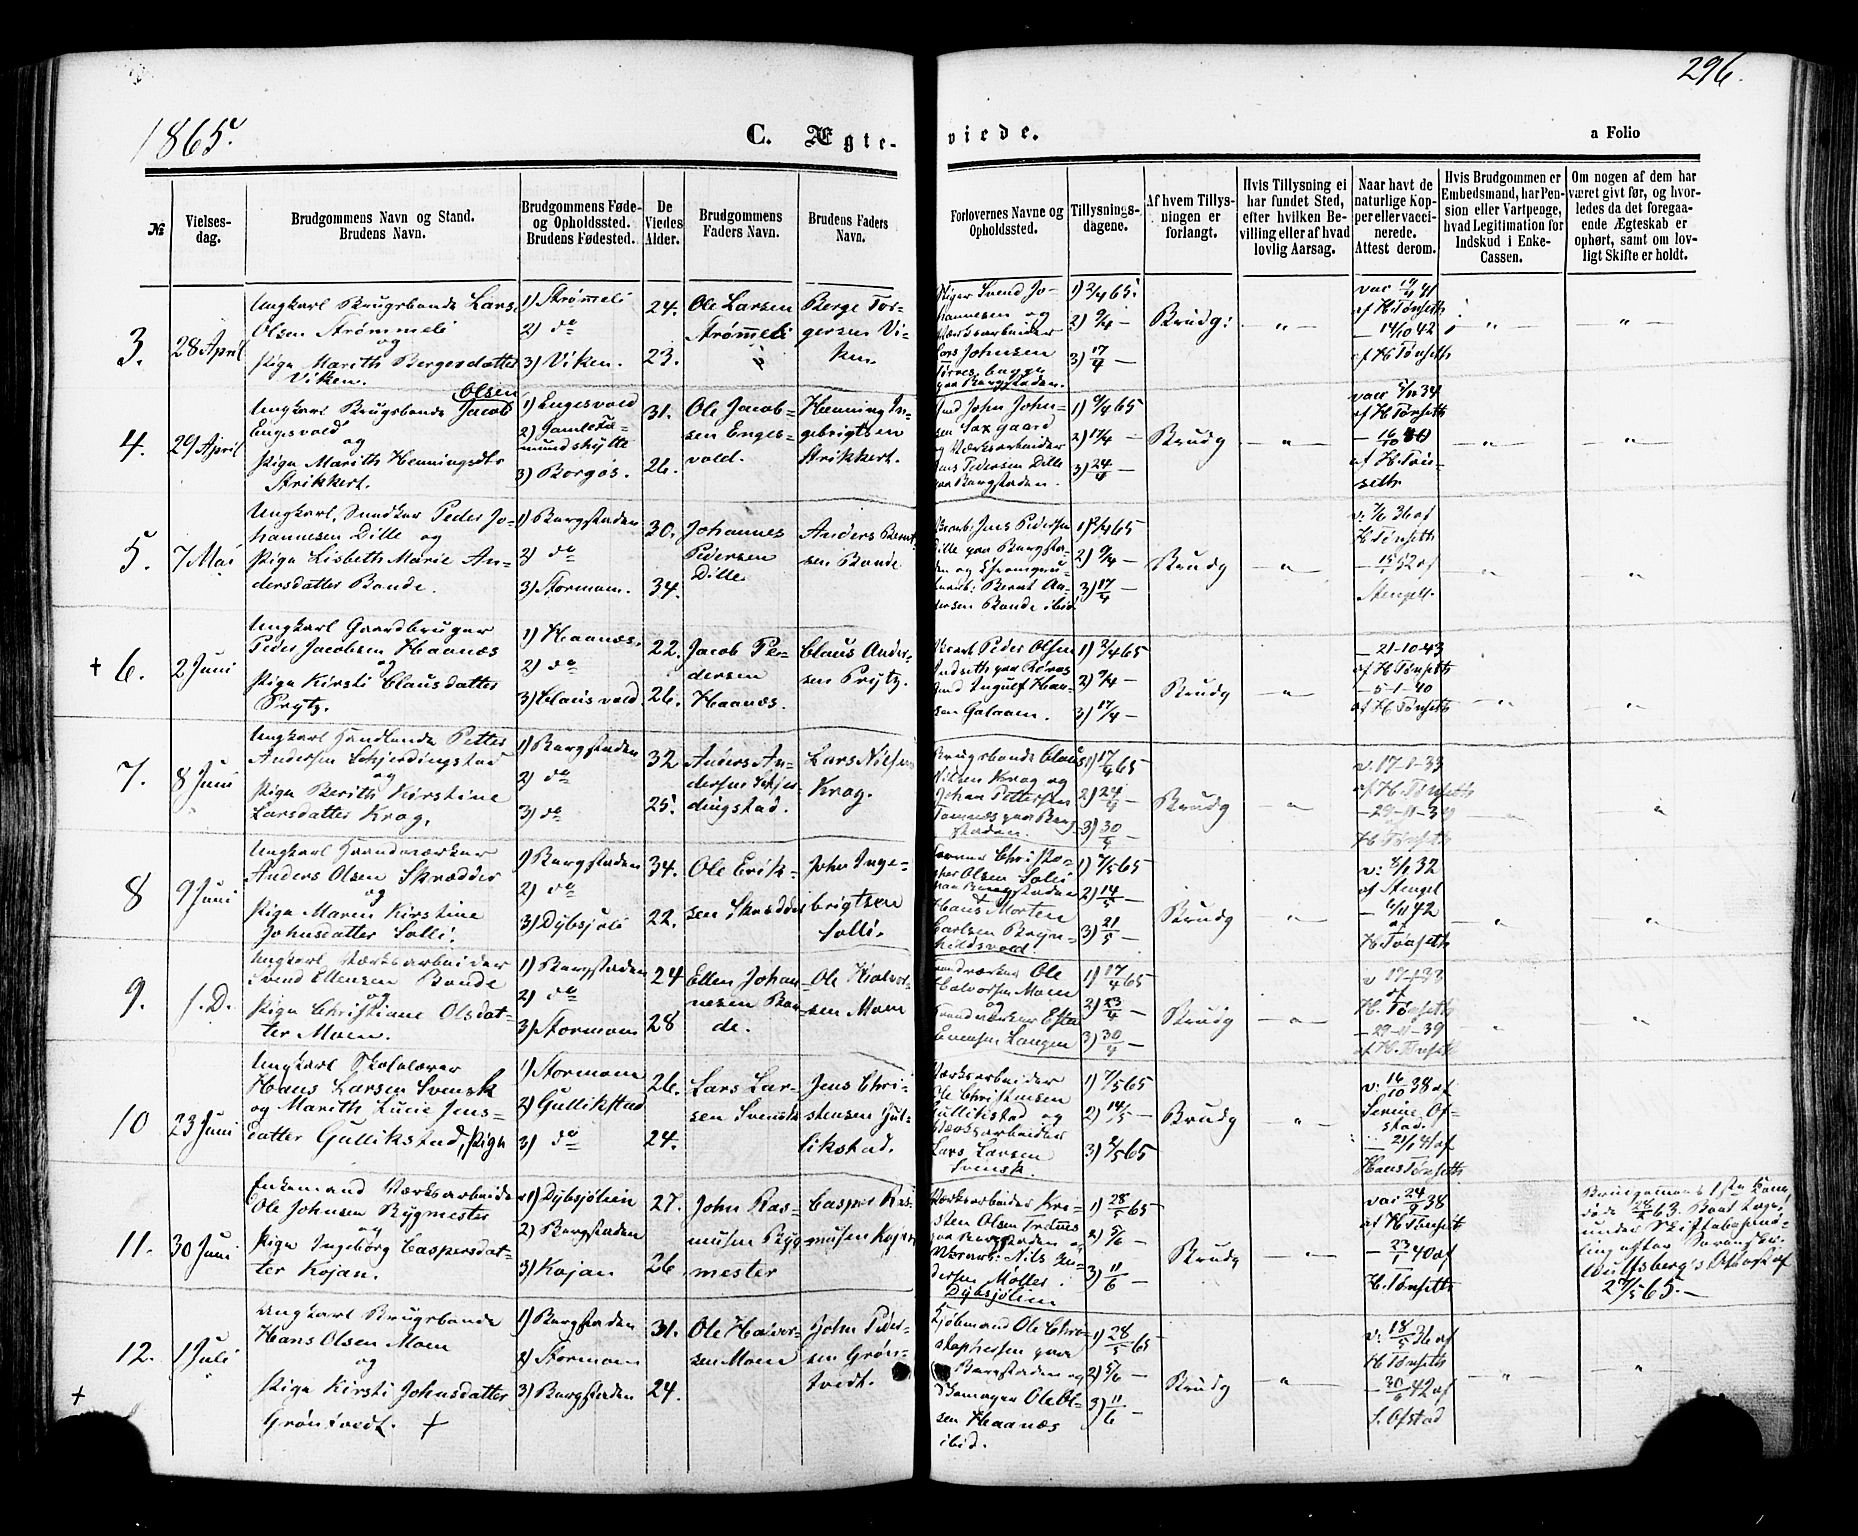 296.
1865.
C. Ægte-
viede.
a Folio
№
Vielses-
dag.
Brudgommens Navn og Stand.
Brudens Navn.
Brudgommens Føde-
og Opholdssted.
Brudens Fødested.
De
Viedes
Alder.
Brudgommens
Faders Navn.
Brudens Faders
Navn.
Forlovernes Navne og
Opholdssted.
Tillysnings-
dagene.
Af hvem Tillys-
ningen er
forlangt.
Hvis Tillysning ei
har fundet Sted,
efter hvilken Be-
villing eller af hvad
lovlig Aarsag.
Naar havt de
naturlige Kop-
per eller vacci-
nerede.
Attest derom.
Hvis Brudgommen er
Embedsmand, har Pen-
sion eller Vartpenge,
hvad Legitimation for
Indskud i Enke-
Cassen.
Om nogen af dem har
været givt før, og hvor-
ledes da det foregaa-
ende Ægteskab er
ophørt, samt om lov-
ligt Skifte er holdt.
3.
28 April
Ungkarl Brugsbonde Lars
Olsen Strømmeli
og
Pige Marith Bergersdatter
Viken.
1) Strømeli
2) do
3) Viken.
24.
23.
Ole Larsen
Strømeli
Berge Tor-
gersen Vi-
ken.
Svend Jo-
hannesen og
Værksarbeider
Lars Johnsen
paa Bergstaden.
1) 2/4 65
2) 9/4 —
3) 17/4 —
Brudg:
— " —
vac 19/4 41
af H. Tønseth
— 14/10 42
af H. Tønseth
"
"
4.
29 April
Ungkarl Brugsbonde Jacob
Olsen
Engesvold
og
Pige Marith Henningsdtr
Strikkert.
1) Engesvold
2) Gamle Fæ-
mundshytte
3) Borgos.
31.
26.
Ole Jacob-
sen Enges-
vold.
Henning In-
gebrigtsen
Strikkert.
John John-
sen Saxgaard
og Værksarbeider
Jens Pedersen Dille
paa Bergstaden.
1) 9/4 65
2) 17/4 —
3) 24/4 —
Brudg
— " —
af H. Tønseth
af H. Tøn-
seth
"
"
5.
7 Mai
Ungkarl, Snedker Peder Jo-
hannesen Dille og
Pige Lisbeth Marie An-
dersdatter Bonde.
1) Bergstaden
2) do
3) Stormoen.
30.
34.
Johannes
Pedersen
Dille
Anders Bernt-
sen Bonde
Jens Pedersen
Dille paa Bergsta-
den og
Bernt An-
dersen Bonde ibid.
1) 2/4 65
2) 9/4 —
3) 17/4
Brudg
— " —
af
H. Tønseth
52 af
Stengel.
"
"
+ 6.
2 Juni
Ungkarl Gaardbruger
Peder Jacobsen Haanæs
og
Pige Kirsti Clausdatter
Prytz.
1) Haanæs.
2) do
3) Clausvold
22.
26.
Jacob Pe-
dersen
Haanæs.
Claus Ander-
sen Prytz.
Peder Olsen
paa Røros
Ingulf Han-
sen Galaaen.
1) 2/4 65
2) 9/4 —
3) 17/4 —
Brudg
— " —
— 21-10-43
af H. Tønseth
— 5-1-40
af H. Tønseth
"
"
7.
8 Juni
Ungkarl Handlende Petter
Andersen Schjerdingstad
og
Pige Berith Kirstine
Larsdatter Krog.
1) Bergstaden
2) do
3) do
32
25.
Anders An-
dersen Schjer-
dingstad.
Lars Nilsen
Krog.
Brugsbonde Claus
Nilsen Krog og
Johan Pettersen
Tamnæs paa Berg-
staden.
1) 17/4 65
2) 24/4 —
3) 30/4 —
Brudg
— " —
v. 17-1-33
af H. Tønseth
— 29-11-39
H. Tønseth
"
"
8
9 Juni
Ungkarl Haandværker
Anders Olsen Skrædder
og
Pige Maren Kirstine
Johnsdatter Solli.
1) Bergstaden
2) do
3) Dybsjøli
34.
22.
Ole Erik-
sen Skrædder
John Inge-
brigtsen
Solli.
Christo-
pher Olsen Solli
paa Bergstaden
Hans Morten
Carlsen Bryn-
hildsvold.
1) 7/5 65
2) 14/5 —
3) 21/5 —
Brudg
— " —
af Stengel
af
H. Tønseth
"
"
9.
s. D.
Ungkarl Værksarbeider
Svend Ellensen Bonde
og
Pige Christiane Olsdat-
ter Moen.
1) Bergstaden
2) do
3) Stormoen
24
28
Ellen Johan-
nesen Bon-
de.
Ole Halvor-
sen Moen
Haandværker Ole
Halvorsen Moen
og
Haandværker
Evensen Langen
1) 17/4 65
2) 23/4 —
3) 30/4 —
Brudg
— " —
v 17-1-33
af
H. Tønseth
— 29-11-39
af H. Tønseth
"
"
10
23 Juni
Ungkarl Skolelærer
Hans Larsen Svensk
og Marith Lucie Jens-
datter Gullikstad, Pige
1) Stormoen
2) Gullikstad
3) do
26.
24.
Lars Lar-
sen Svensk
Jens Chri-
stensen Gul-
likstad.
Værksarbeider
Ole Christensen
Gullikstad og
Værksarbeider
Lars Larsen
Svensk.
1) 7/5 65
2) 14/5 —
3) 21/5 65
Brudg
— " —
v. 16/10 38 af
Serine Of-
stad.
— 21/1 41 af
Hans Tønseth
11.
30 Juni
Enkemand Værksarbeider
Ole Johnsen Bygmester
og
Pige Ingeborg Caspersdat-
ter Kojan.
1) Dybsjølien
2) Bergstaden
3) Kojan
27.
26.
John Ras-
musen Byg-
mester
Casper Ras-
musen Kojan
Værksarbeider Kri-
sten Olsen
paa Bergstaden og
Nils An-
dersen Møller
Dybsjølien
1) 28/5 65
2) 5/6 —
3) 11/6 —
Brudg
— " —
vac 24/9 38
af H. Tønseth
— 23/1 40 af
H. Tønseth
Brudgommens 1ste Kone
døde 63.
under Skiftebehand-
ling efter Sorenskr.
Wulfsberg's Attest af
27/5 65. —
12.
1 Juli
Ungkarl Brugsbonde
Hans Olsen Moen
og
Pige Kirsti Johnsdatter
Grøntvedt. +
+
1) Bergstaden
2) Stormoen
3) Bergstaden
31.
24.
Ole Halvor-
sen Moen
John Peder-
sen Grøn-
tvedt.
Kjøbmand Ole Chri-
stophersen paa
Bergstaden og
Ole Ol-
sen Haanæs
ibid.
1) 28/5 65
2) 5/6 —
3) 11/6
Brudg
— " —
v. 18/5 36 af
H. Tønseth
— 30/9 42 af
S. Ofstad
"
"